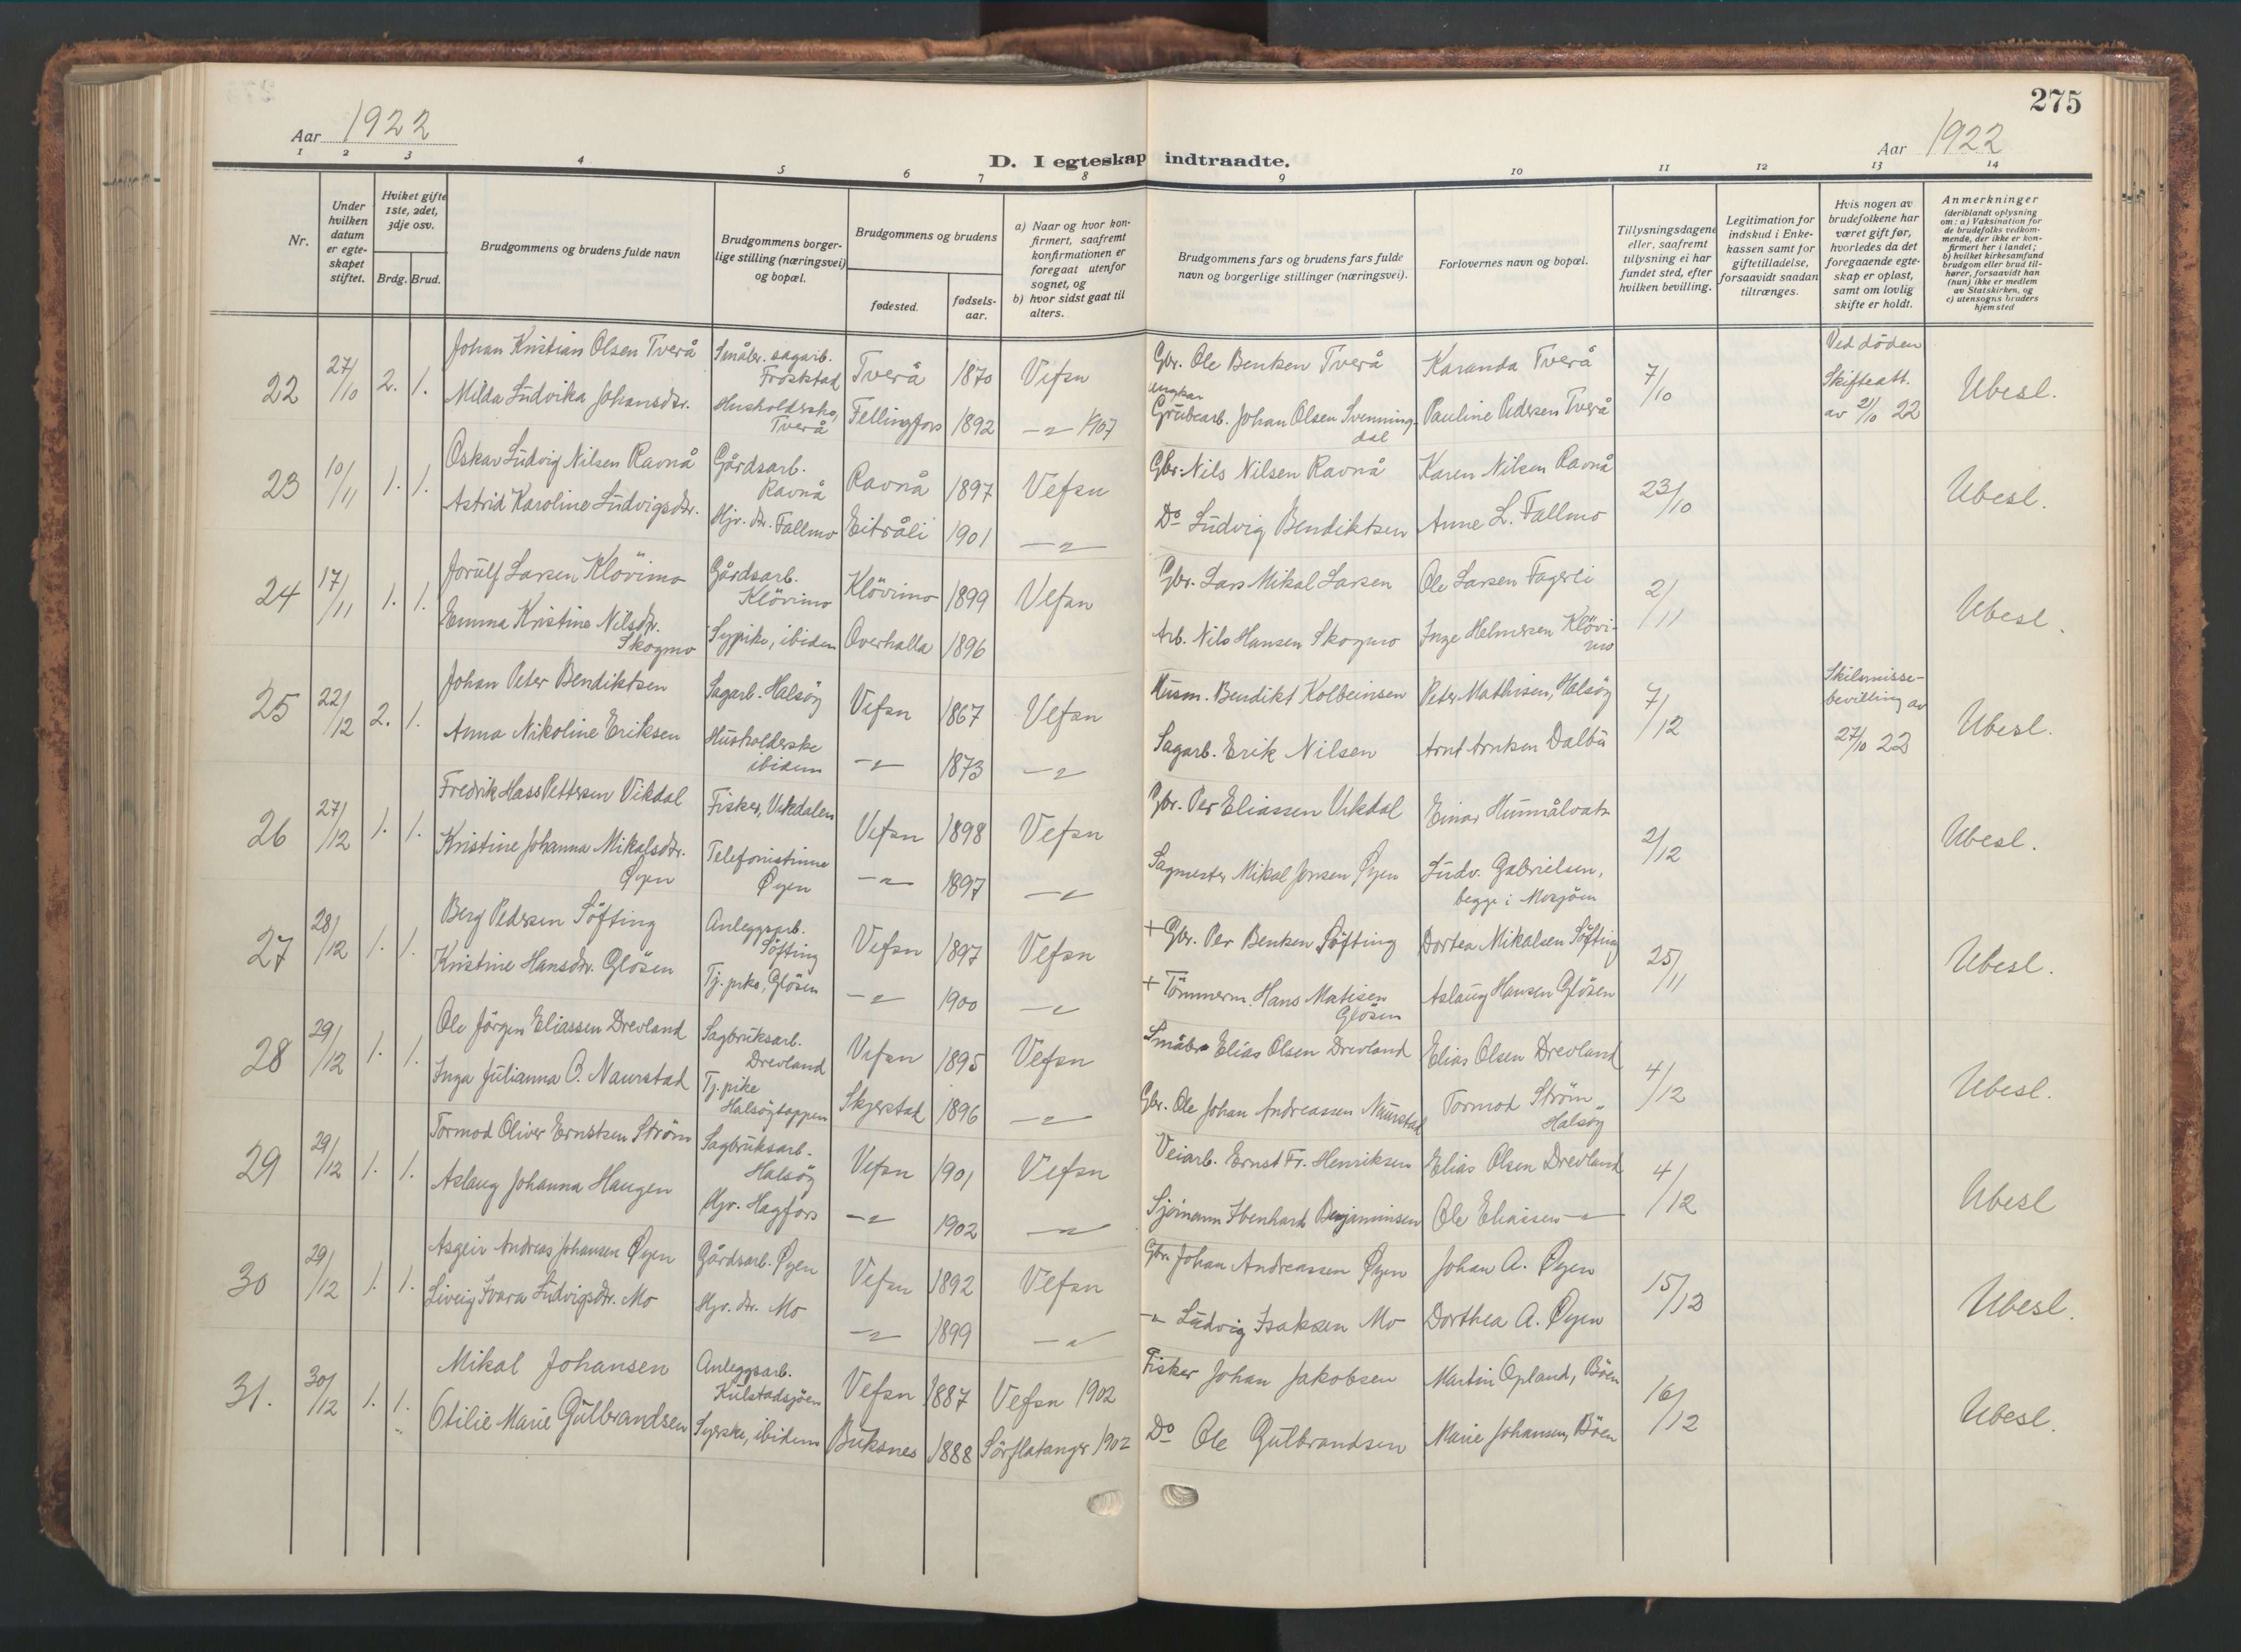 275
Aar 1922
Aar 1922
D. I egteskap indtraadte.
1 2 3 4 5 6 7 8 9 10 11 12 13 14
Nr.
Under hvilken datum er egte-skapet stiftet.
Hviket gifte 1ste, 2det, 3dje osv.
Brdg. Brud.
Brudgommens og brudens fulde navn
Brudgommens borger-lige stilling (næringsvei) og bopæl.
Brudgommens og brudens
fødested.
fødsels-aar.
a) Naar og hvor kon-firmert, saafremt konfirmationen er foregaat utenfor sognet, og
b) hvor sidst gaat til alters.
Brudgommens fars og brudens fars fulde navn og borgerlige stillinger (næringsvei).
Forlovernes navn og bopæl.
Tillysningsdagene eller, saafremt tillysning ei har fundet sted, efter hvilken bevilling.
Legitimation for indskud i Enke-kassen samt for giftetilladelse, forsaavidt saadan tiltrænges.
Hvis nogen av brudefolkene har været gift før, hvorledes da det foregaaende egte-skap er opløst, samt om lovlig skifte er holdt.
Anmerkninger
(deriblandt oplysning om: a) Vaksination for de brudefolks vedkom-mende, der ikke er kon-firmert her i landet; b) hvilket kirkesamfund brudgom eller brud til-hører, forsaavidt han (hun) ikke er medlem av Statskirken, og c) utensogns bruders hjemsted
22 27/10 2. 1. Johan Kristian Olsen Tverå Småbr. sagarb. Frostad Tverå 1870 Vefsn Gbr. Ole Bentsen Tverå Karanda Tverå 7/10 Ved döden Skifteatt. av 21/10 22 Ubesl.
Milda Ludvika Johansdtr. Husholderske, Tverå Fellingfors 1892 -"- 1907 Ungkar Grubearb. Johan Olsen Svenningdal Pauline Pedersen Tverå
23 10/11 1. 1. Oskar Ludvig Nilsen Ravnå Gårdsarb. Ravnå Ravnå 1897 Vefsn Gbr. Nils Nilsen Ravnå Karen Nilsen Ravnå 23/10 Ubesl.
Astrid Karoline Ludvigsdtr. Hjv. dtr. Fallmo Eitråli 1901 -"- Do Ludvig Bendiktsen Anne L. Fallmo
24 17/11 1. 1. Jorulf Larsen Klövimo Gårdsarb. Klövimo Klövimo 1899 Vefsn Gbr. Lars Mikal Larsen Ole Larsen Fagerli 2/11 Ubesl.
Emma Kristine Nilsdtr. Skogmo Sypike, ibidem Overhalla 1896 Arb. Nils Hansen Skogmo Inge Helmersen Klövimo
25 22/12 2. 1. Johan Peter Bendiktsen Sagarb. Halsöy Vefsn 1867 Vefsn Husm. Bendikt Kolbeinsen Peter Mathisen, Halsöy 7/12 Skilsmisse-bevilling av 27/10 22 Ubesl.
Anna Nikoline Eriksen Husholderske ibidem -"- 1873 -"- Sagarb. Erik Nilsen Arnt Arntsen Dalbu
26 27/12 1. 1. Fredrik Hass Pettersen Vikdal Fisker, Vikdalen Vefsn 1898 Vefsn Gbr. Per Eliassen Vikdal Einar Hunnålvatn 2/12 Ubesl.
Kristine Johanna Mikalsdtr. Øyen Telefonistinne Øyen -"- 1897 -"- Sagmester Mikal Jensen Øyen Ludv. Gabrielsen, begge i Mosjöen
27 28/12 1. 1. Berg Pedersen Söfting Anleggsarb. Söfting Vefsn 1897 Vefsn + Gbr. Per Bentsen Söfting Dortea Mikalsen Söfting 25/11 Ubesl.
Kristine Hansdtr. Glösen Tj. pike, Glösen -"- 1900 -"- + Tömmerm. Hans Matisen Glösen Aslaug Hansen Glösen
28 29/12 1. 1. Ole Jörgen Eliassen Drevland Sagbruksarb. Drevland Vefsn 1895 Vefsn Småbr. Elias Olsen Drevland Elias Olsen Drevland 4/12 Ubesl.
Inga Julianna O. Naurstad Tj. pike Halsöytoppen Skjerstad 1896 -"- Gbr. Ole Johan Andreassen Naurstad Tormod Ström Halsöy
29 29/12 1. 1. Tormod Oliver Ernstsen Ström Sagbruksarb. Halsöy Vefsn 1901 Vefsn Veiarb. Ernst Fr. Henriksen Elias Olsen Drevland 4/12 Ubesl
Aslaug Johanna Haugen Hjv. Hagfors -"- 1902 -"- Sjömann Ibenhard Benjaminsen Ole Eliassen -"-
30 29/12 1. 1. Asgeir Andreas Johansen Øyen Gårdsarb. Øyen Vefsn 1892 Vefsn Gbr. Johan Andreassen Øyen Johan A. Øyen 15/12 Ubesl.
Liveig Ivara Ludvigsdtr. Mo Hjv. dtr. Mo -"- 1899 -"- -"- Ludvig Isaksen Mo Dorthea A. Øyen
31. 30/12 1. 1. Mikal Johansen Anleggsarb. Kulstadsjöen Vefsn 1887 Vefsn 1902 Fisker Johan Jakobsen Martin Opland, Böen 16/12 Ubesl.
Otilie Marie Gulbrandsen Syerske, ibidem Buksnes 1888 Sörflatanger 1902 Do Ole Gulbrandsen Marie Johansen, Böen